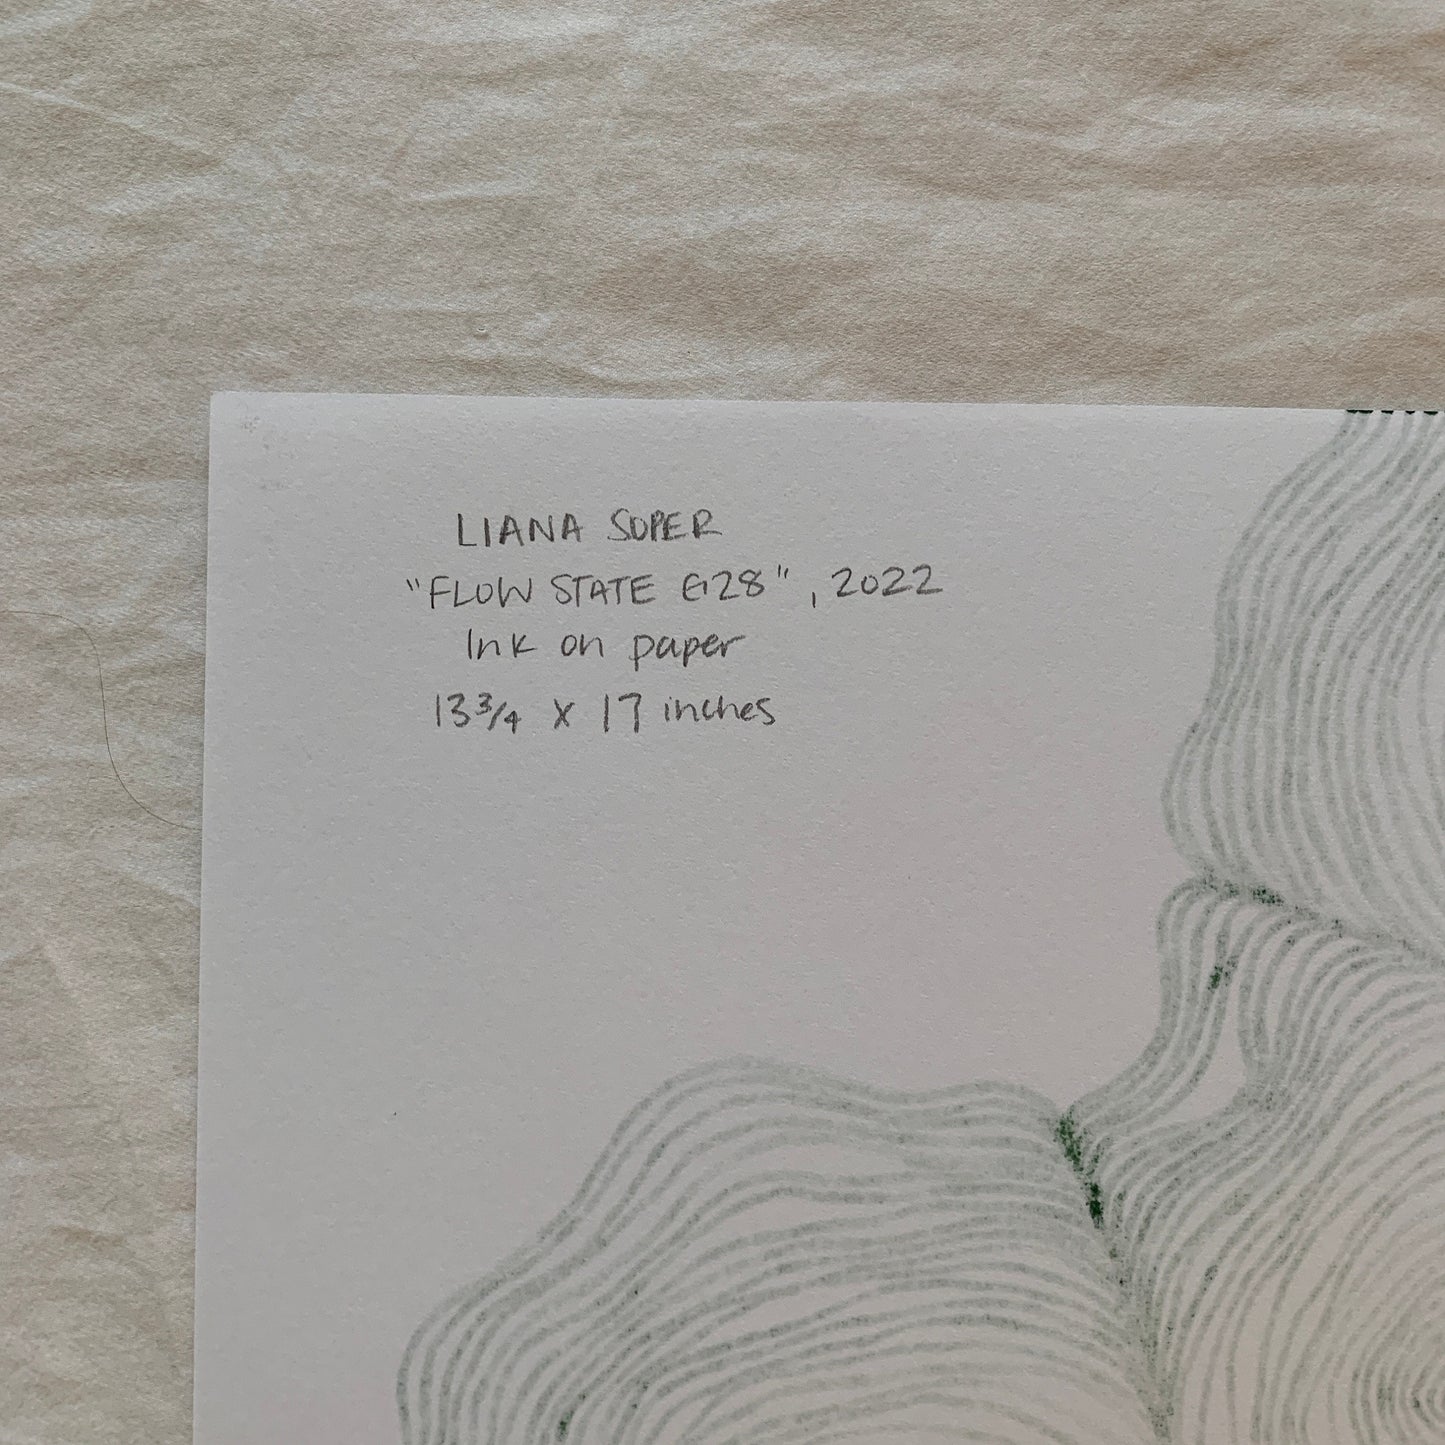 LIANA SUPER
"FLOW STATE G28", 2022
Ink on paper
13 3/4 X 17 inches